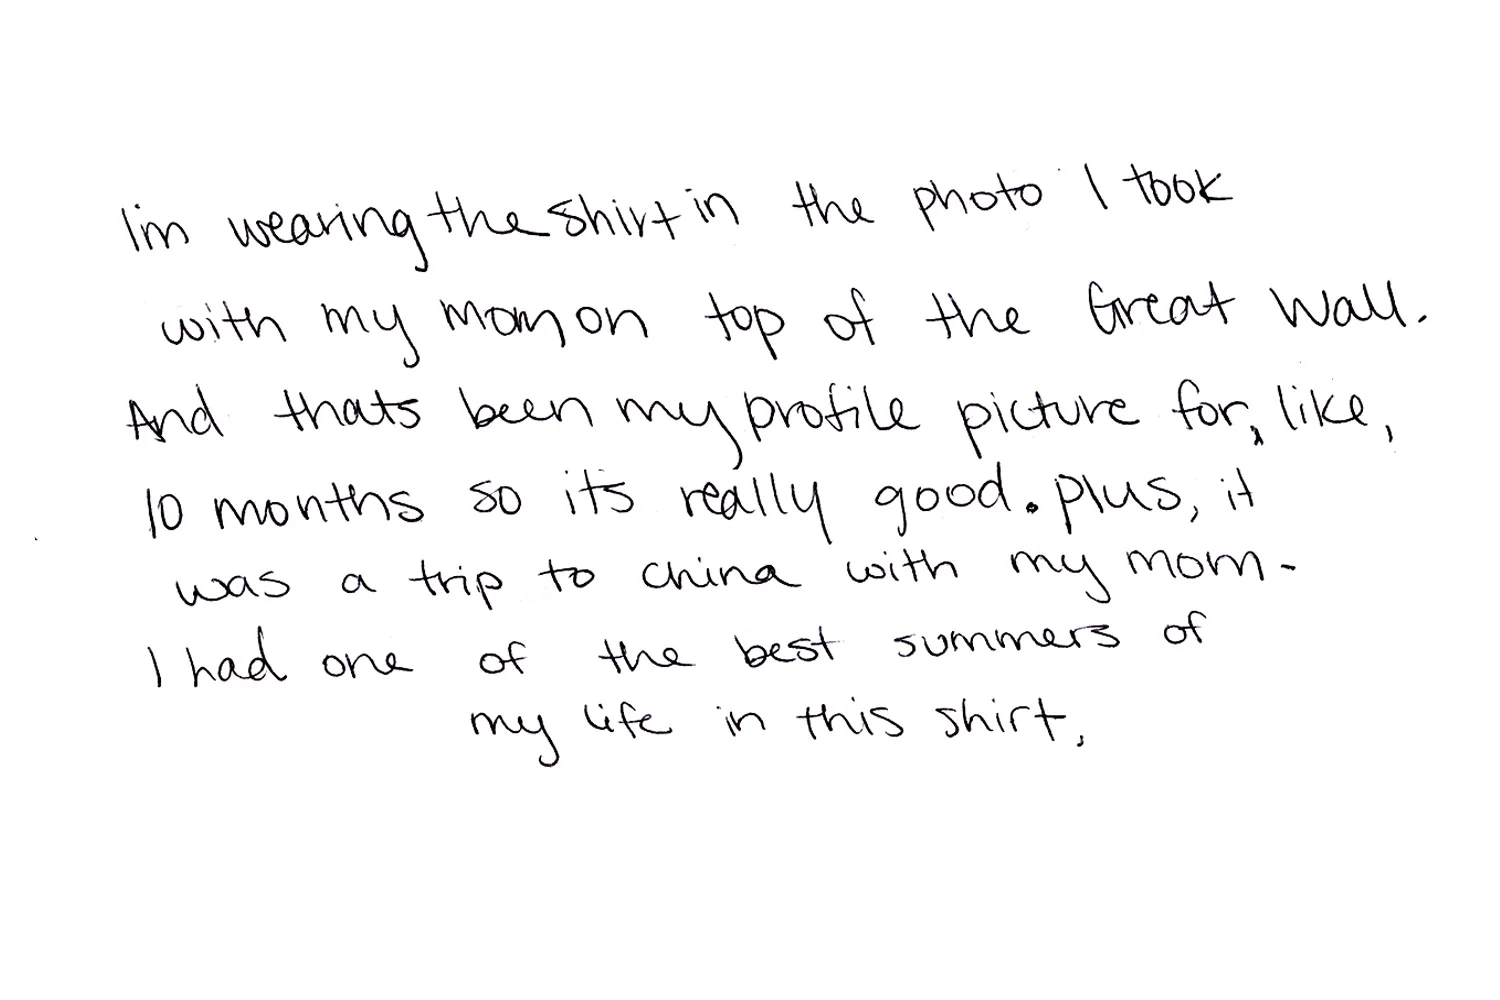 I'm wearing the shirt in the photo I took
with my mom on top of the Great Wall.
And thats been my profile picture for, like,
10 months so its really good. plus, it
was a trip to china with my mom-
I had one of the best summers of
my life in this shirt,